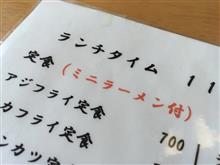 ランチタイム 11
定食(ミニラーメン付)
アジフライ定食 700
カフライ定食
ンカツ定